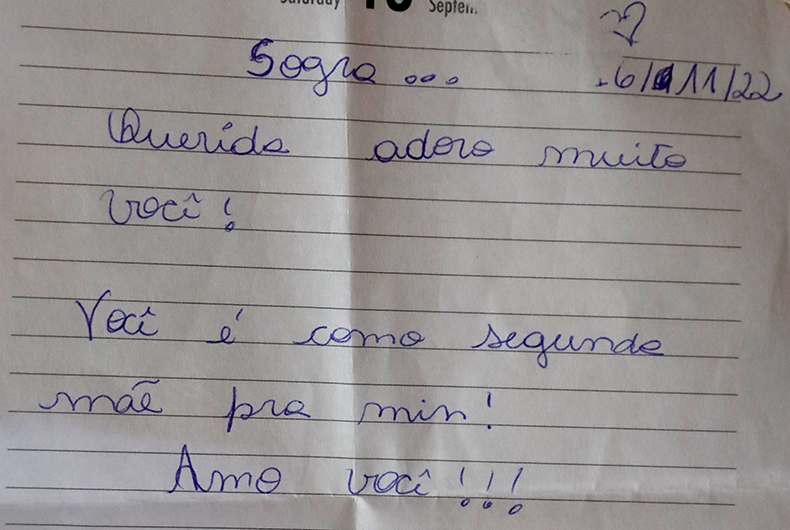 Saturday 10 Septem
Sogra...
6/11/22
Querida adoro muito
você!
Você é como segunda
mãe pra min!
Amo você!!!